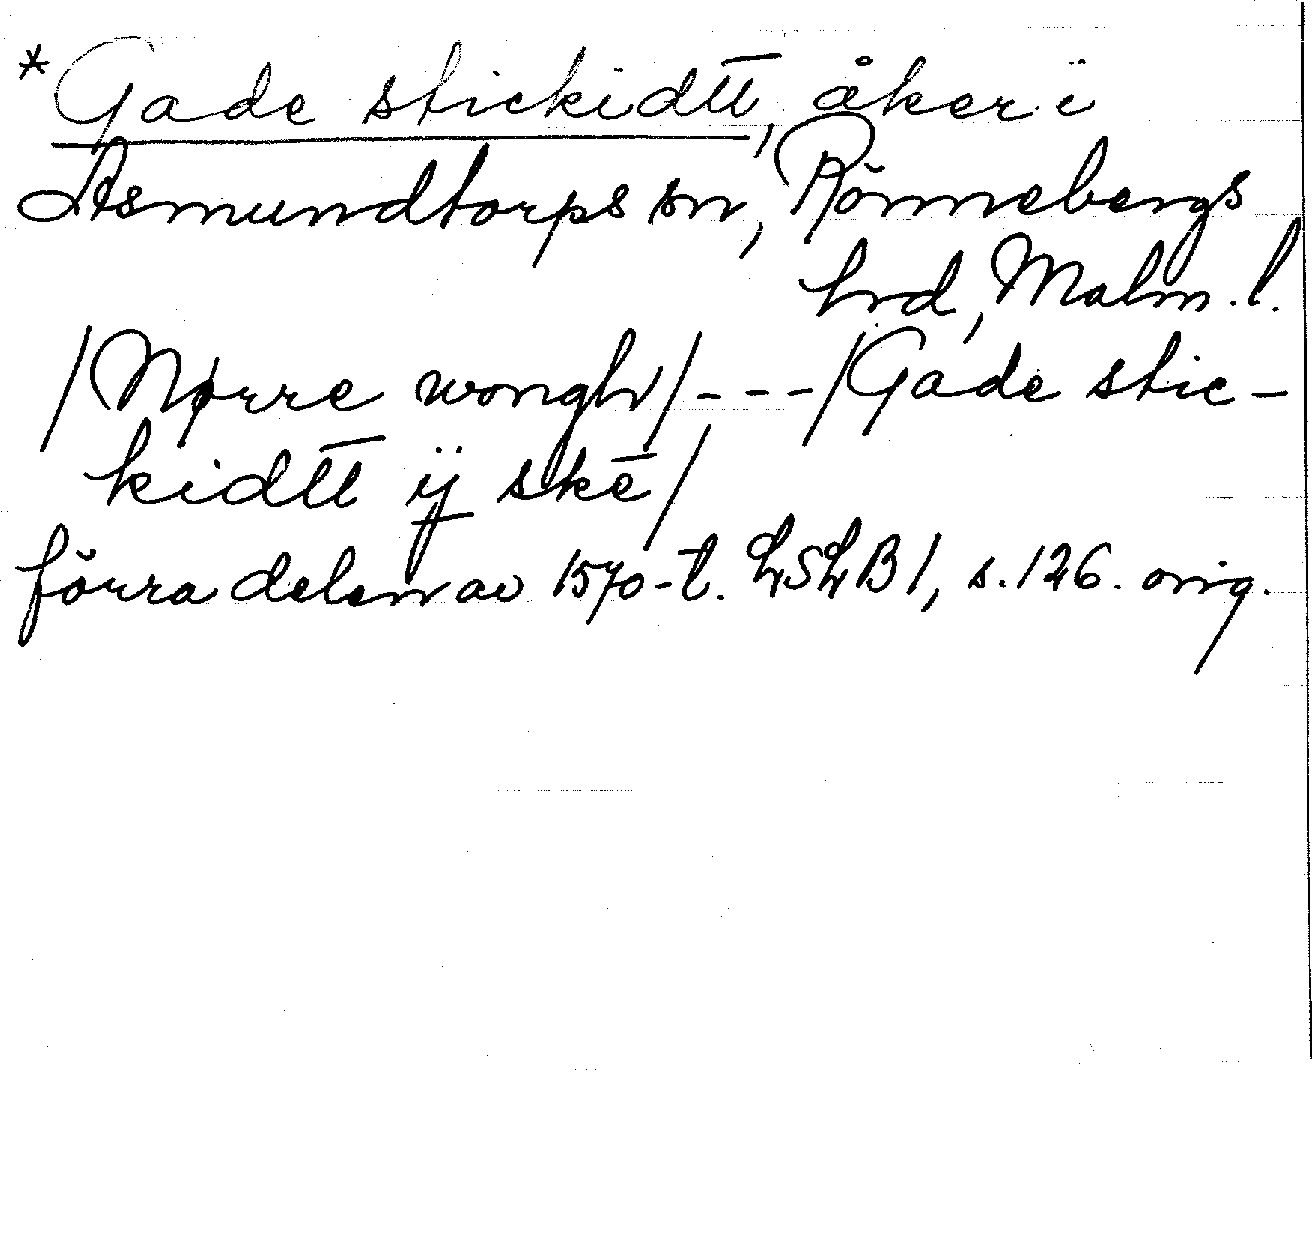 *Gade stickidtt, åker i
Asmundtorps sn, Rönnebergs
hrd, Malm. l.
/Nørre wongh/---/Gade stic-
kidtt ÿ skē/
förra delen av 1570-t. LSLB 1, s. 126. orig.